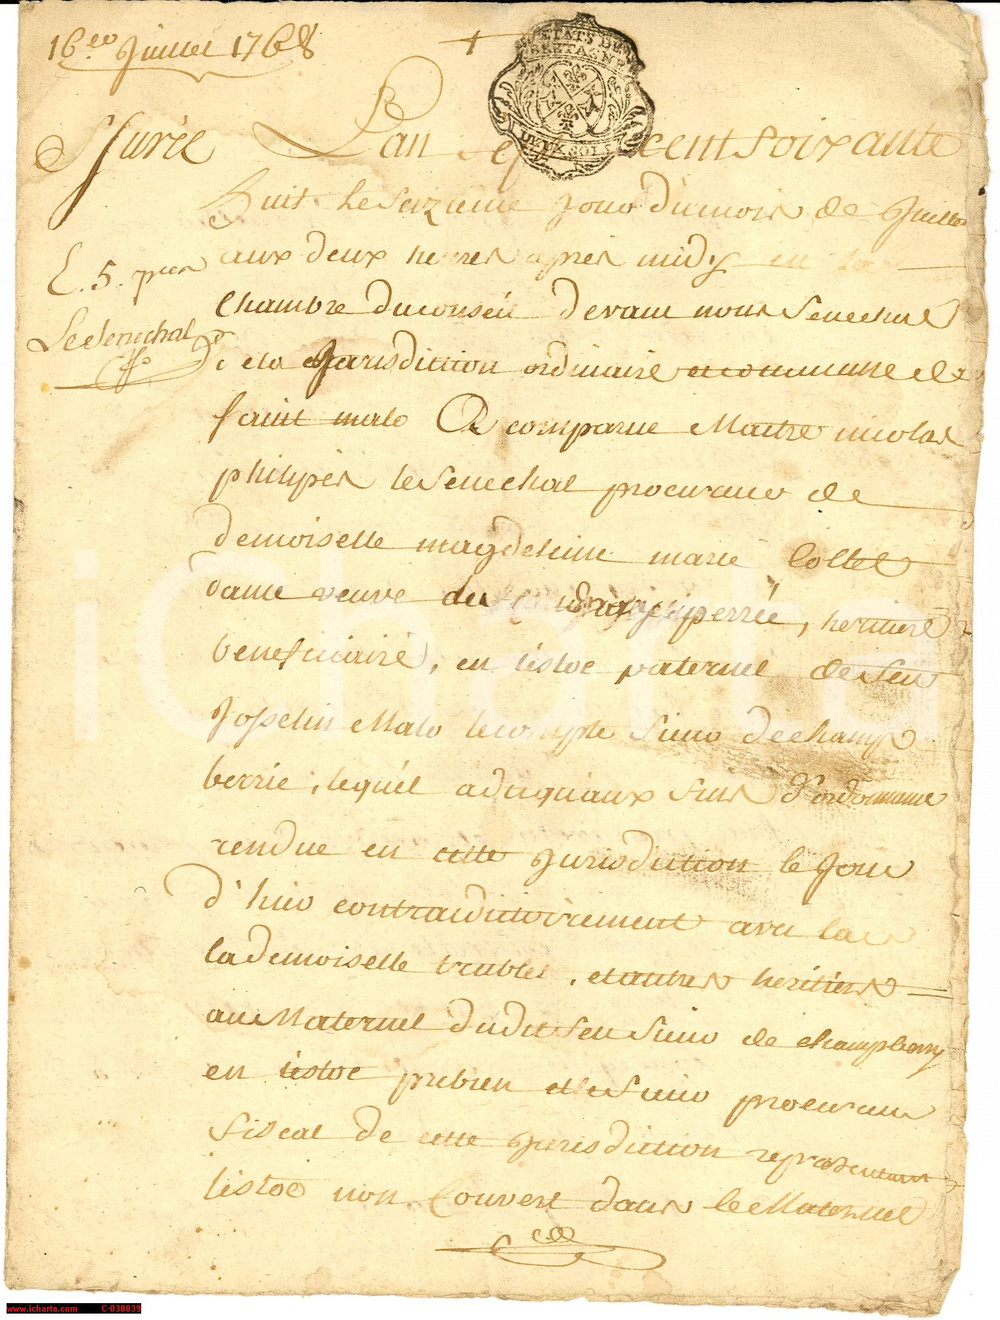 16.eo Juillet 1768
+
ETATS DE
BRETAGNE
DEUX SOLS
L'an sept cent soixante
huit le seizieme Jour du mois de Juillet
aux deux heures apres midy en la
E. 5. p
Chambre du conseil devant nous Senechal
Le Senechal
de la Jurisdiction ordinaire et commune de
saint malo A comparue Maitre nicolas
philipes le Senechal procureur de
demoiselle magdelaine marie Collet
dame veuve du perrée, heritiere
beneficiaire, en l'estoc paternel de feu
Josselin Malo lecompte Sieur de champ
berrie, lequel a dit qu'aux fins d'ordonnance
rendue en cette Jurisdiction le Jour
d'hier contradictoirement avec la
lademoiselle troublet, et autres heritiers
au Maternel dudit feu Sieur de champberry
en l'estoc et le Sieur procureur
fiscal de cette Jurisdiction representant
l'estoc non Couvert dans le Maternel
iCharta
www.icharta.com C-038839